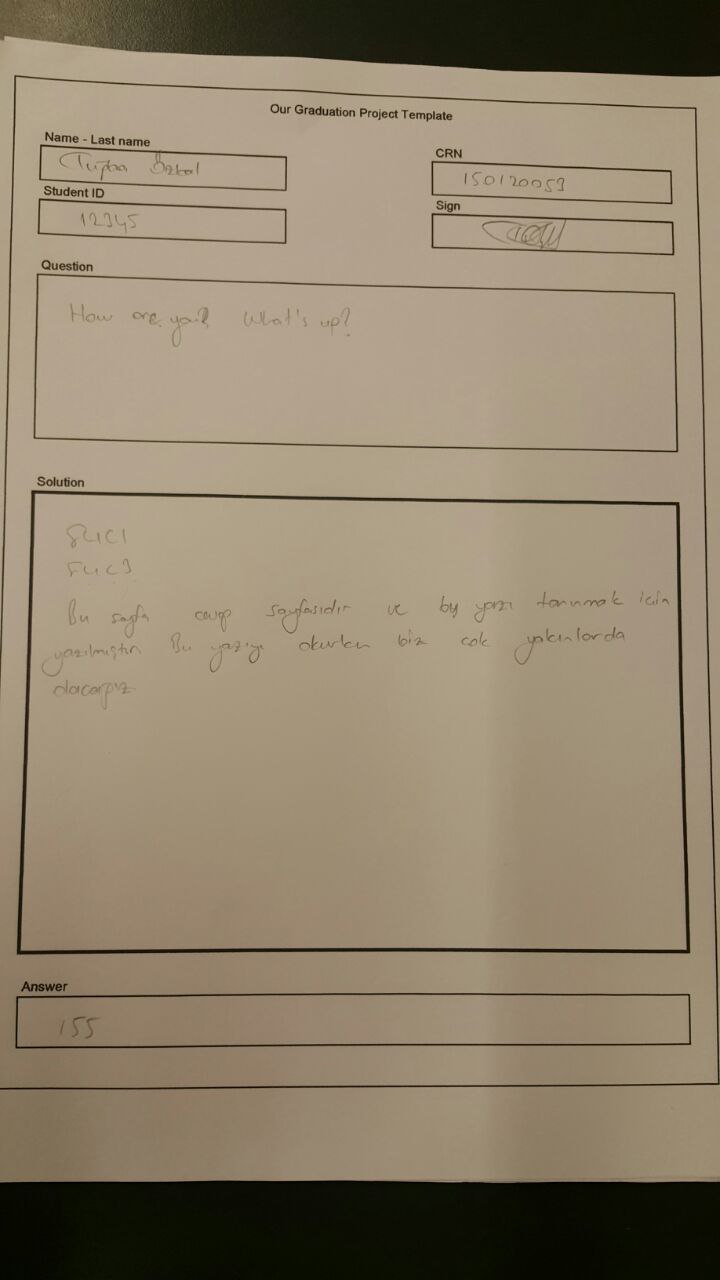 Our Graduation Project Template
Name - Last name
CRN
Tuğba
150120053
Student ID
Sign
12345
Question
How are you? What's up?
Solution
Bu sayfa cevap sayfasıdır ve bu yazı tanınmak icin
yazılmıştır Bu yazıyı okurken biz cok yakınlarda
olacağız
Answer
155